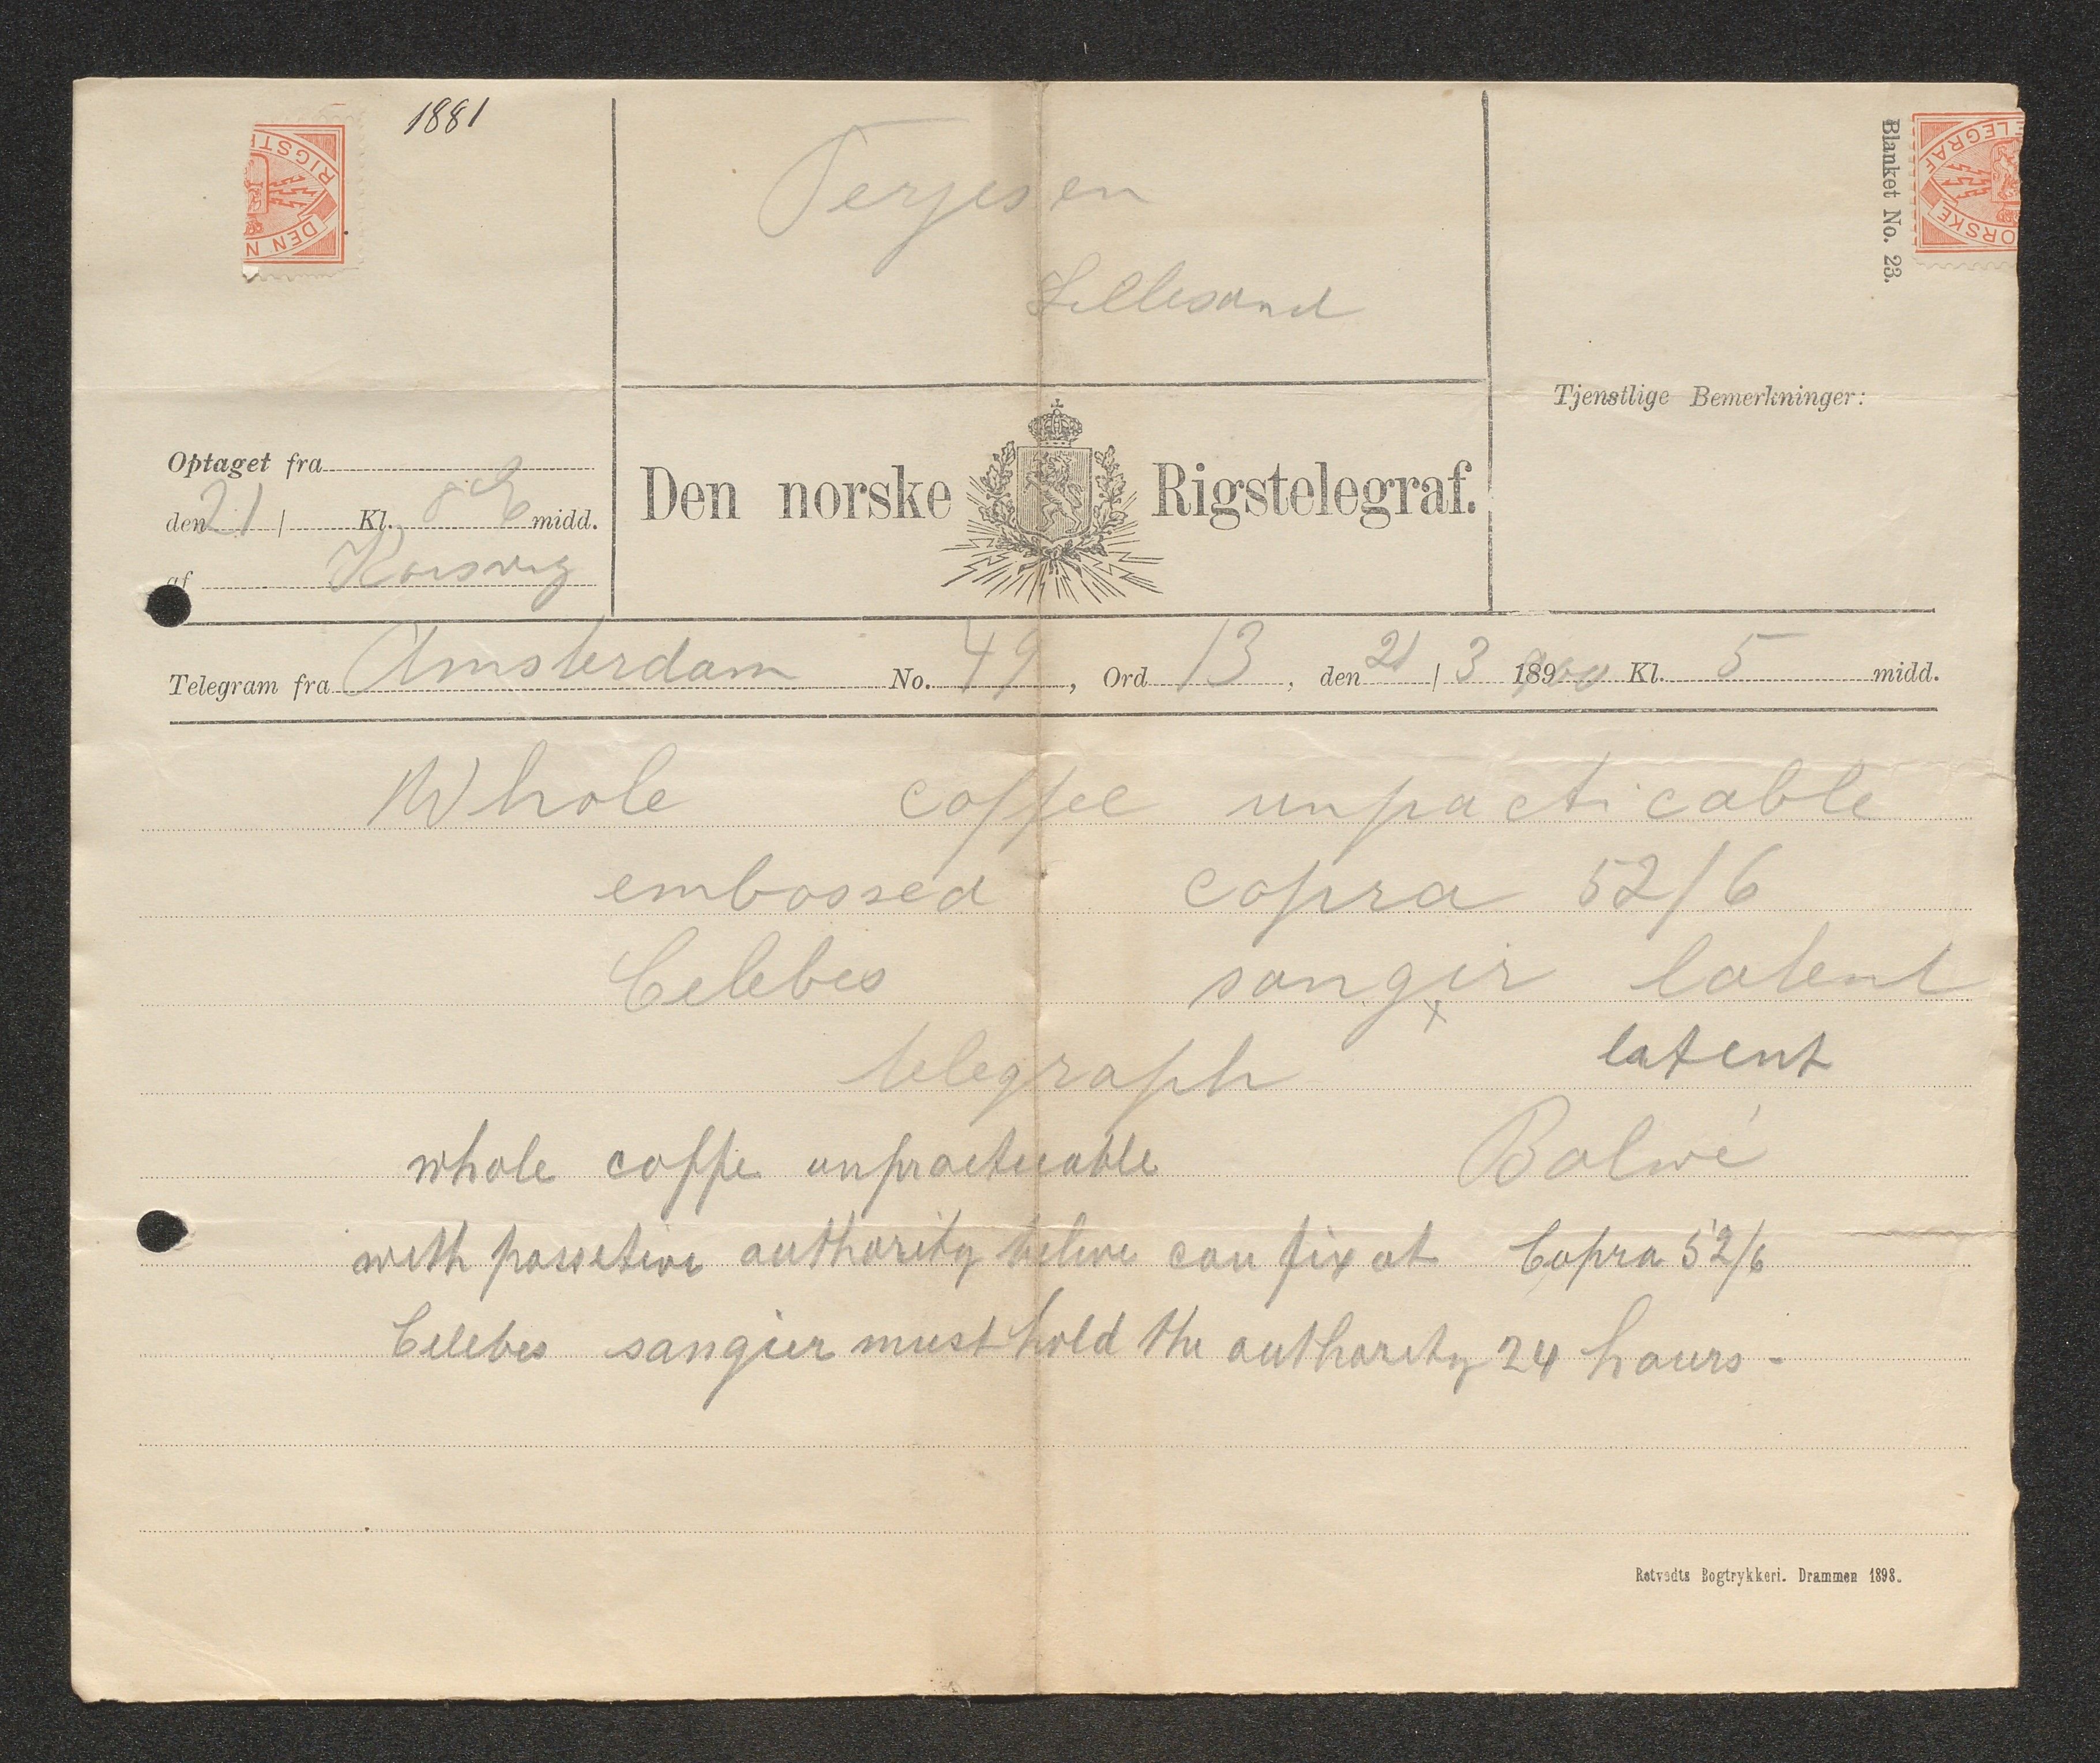 1881
Terjesen
Lillesand
Blanket No. 23.
RIGSTE
DEN N
ELEGRAF
ORSKE
Tjenstlige Bemerkninger:
Optaget fra
den 21 / Kl. 8 E midd.
af Korsvig
Den norske Rigstelegraf.
Telegram fra Amsterdam No. 49, Ord 13, den 21 / 3 189 900 Kl. 5 midd.
Whole coffee unpacticable
embossed copra 52/6
Celebes sangir latent
telegraph latent
Bolwé
whole coffe unpracticable
with possetive authority can fix at Copra 52/6
Celebes sangier must hold the authority 24 hours -
Rotvedts Bogtrykkeri. Drammen 1898.